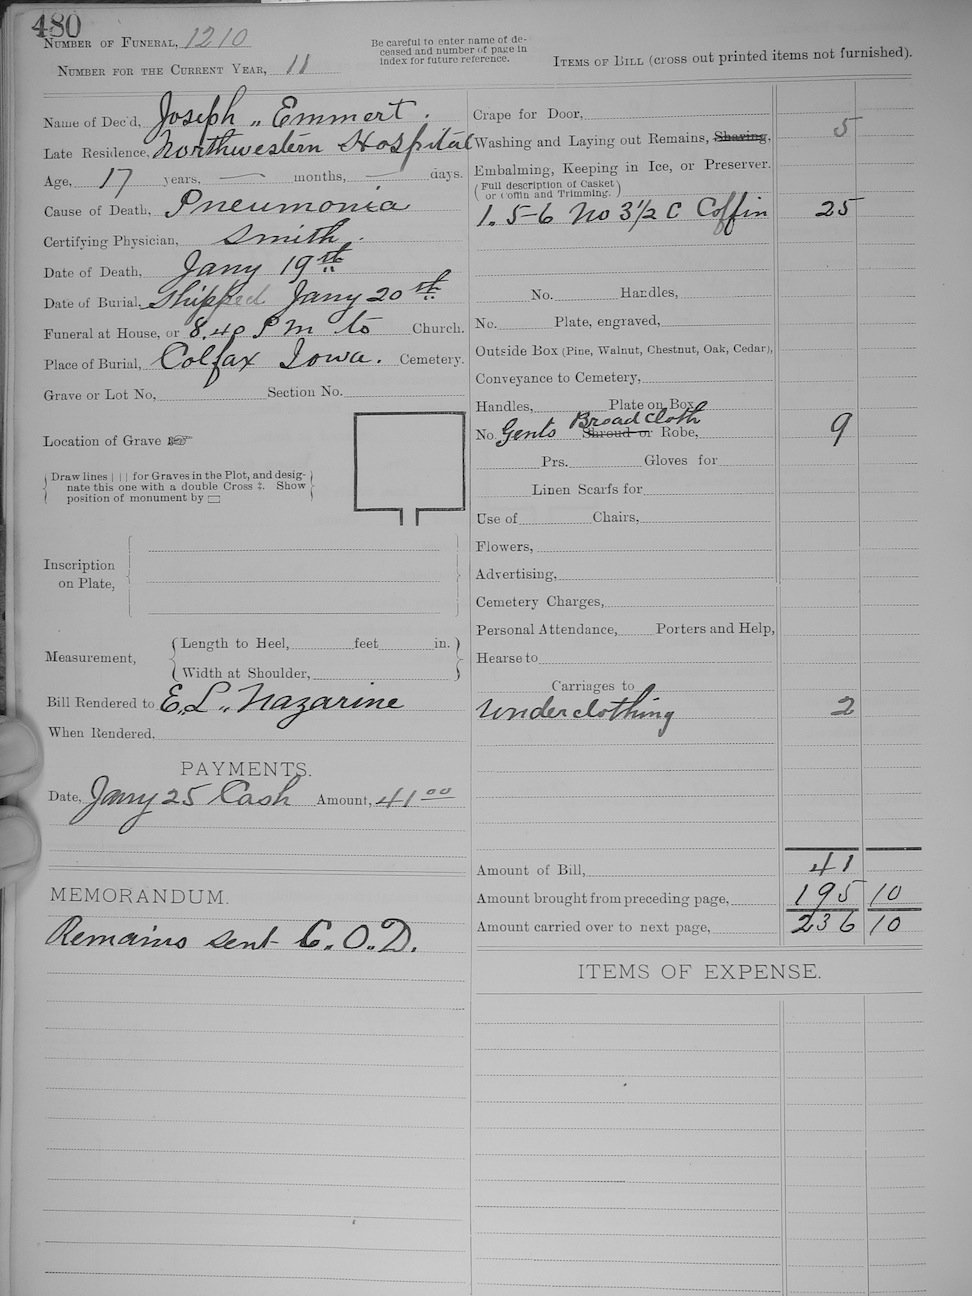 480
NUMBER OF FUNERAL, 1210
NUMBER FOR THE CURRENT YEAR, 11
Be careful to enter name of de-
ceased and number of page in
index for future reference.
ITEMS OF BILL (cross out printed items not furnished).
Name of Dec'd, Joseph " Emmert .
Late Residence, Northwestern Hospital
Age, 17 years, — months, — days.
Cause of Death, Pneumonia
Certifying Physician, Smith .
Date of Death, Jany 19st
Date of Burial, Shipped Jany 20st
Funeral at House, or 8.40 P M to Church.
Place of Burial, Colfax Iowa. Cemetery.
Grave or Lot No, Section No.
Location of Grave ☞
Draw lines | | | for Graves in the Plot, and desig-
nate this one with a double Cross ‡. Show
position of monument by ▭
Inscription
on Plate,
Measurement,
Length to Heel, feet in.
Width at Shoulder,
Bill Rendered to E." L." Nazarine
When Rendered.
PAYMENTS.
Date, Jany 25 Cash Amount, 41 00
MEMORANDUM.
Remains sent C.O.D.
Crape for Door,
Washing and Laying out Remains, Shaving, 5
Embalming, Keeping in Ice, or Preserver.
(Full description of Casket
or Coffin and Trimming.)
1. 5-6 No 3½ C Coffin 25
No. Handles,
No. Plate, engraved,
Outside Box (Pine, Walnut, Chestnut, Oak, Cedar),
Conveyance to Cemetery,
Handles, Plate on Box
No. Gents Broadcloth Shroud or Robe, 9
Prs. Gloves for
Linen Scarfs for
Use of Chairs,
Flowers,
Advertising,
Cemetery Charges,
Personal Attendance, Porters and Help,
Hearse to
Carriages to
Underclothing 2
Amount of Bill, 41
Amount brought from preceding page, 195 10
Amount carried over to next page, 236 10
ITEMS OF EXPENSE.